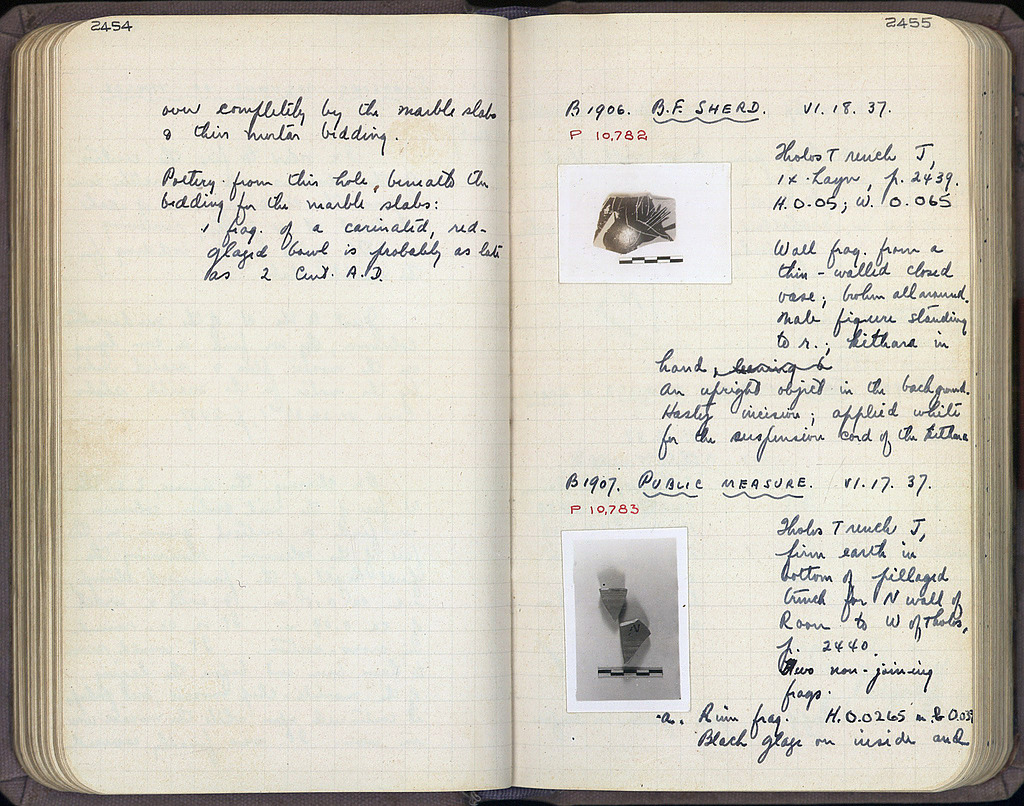 2454
over completely by the marble slabs
& thin mortar bedding.
Pottery from this hole, beneath the
bedding for the marble slabs:
1 frag. of a carinated, red-
glazed bowl is probably as late
as 2 Cent. A.D.
2455
B 1906. B.F. SHERD. VI. 18. 37.
P 10,782
Tholos Trench J,
IX Layer, p. 2439.
H. 0.05; W. 0.065
Wall frag. from a
thin-walled closed
vase; broken all around.
Male figure standing
to r.; kithara in
hand,
An upright object in the background.
Hasty incision; applied white
for the suspension cord of the kithara
B 1907. PUBLIC MEASURE. VI. 17. 37.
P 10,783
Tholos Trench J,
firm earth in
bottom of pillaged
trench for N wall of
Room to W of Tholos,
p. 2440.
Two non-joining
frags.
a. Rim frag. H. 0.0265 m. b 0.039
Black glaze on inside and